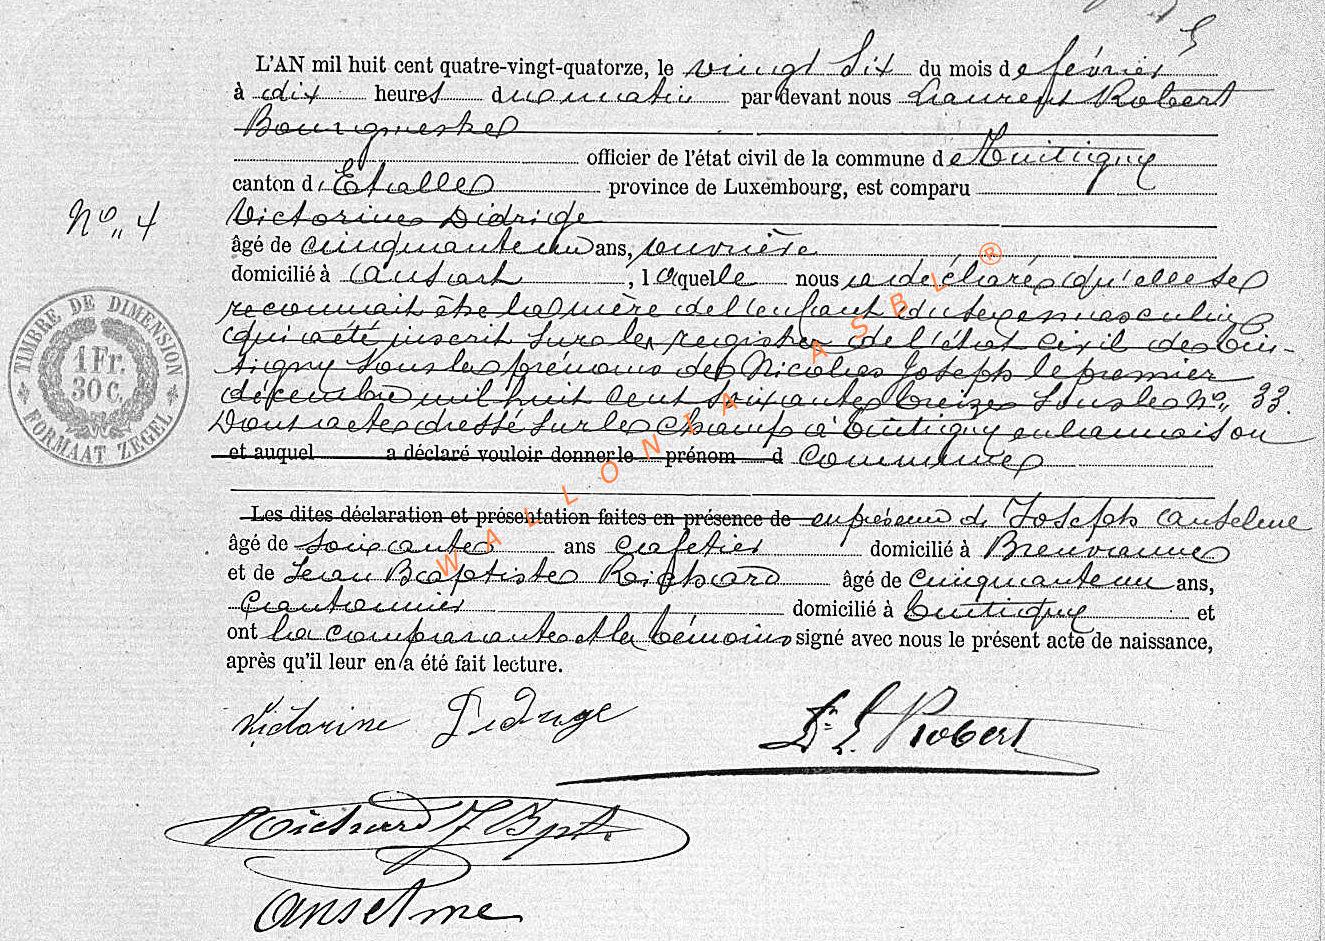 5
L'AN mil huit cent quatre-vingt-quatorze, le vingt Six du mois de février
à dix heures du matin par devant nous Laurent Robert
Bourgmestre
officier de l'état civil de la commune de Tintigny
canton d'Etalle province de Luxembourg, est comparu
N° 4 Victorine Didrige
âgé de cinquante un ans, ouvrière
domicilié à Ansart, laquelle nous a déclaré qu'elle se
reconnait être la mère de l'enfant du sexe masculin
qui a été inscrit sur les registres de l'état civil de Tin-
tigny sous les prénoms de Nicolas Joseph le premier
décembre mil huit cent soixante treize sous le N° 33.
Dont acte dressé sur le champ à Tintigny en la maison
et auquel a déclaré vouloir donner le prénom d commune
Les dites déclaration et présentation faites en présence de en présence de Joseph Anselme
âgé de soixante ans cafetier domicilié à Breuvanne
et de Jean Baptiste Richard âgé de cinquante un ans,
Cantonnier domicilié à Tintigny et
ont la comparante et les témoins signé avec nous le présent acte de naissance,
après qu'il leur en a été fait lecture.
Victorine Didrige
Dr. L. Robert
Richard J Bpt.
Anselme
TIMBRE DE DIMENSION
1 Fr.
30 C.
FORMAAT ZEGEL
WALLONIA ASBL ®